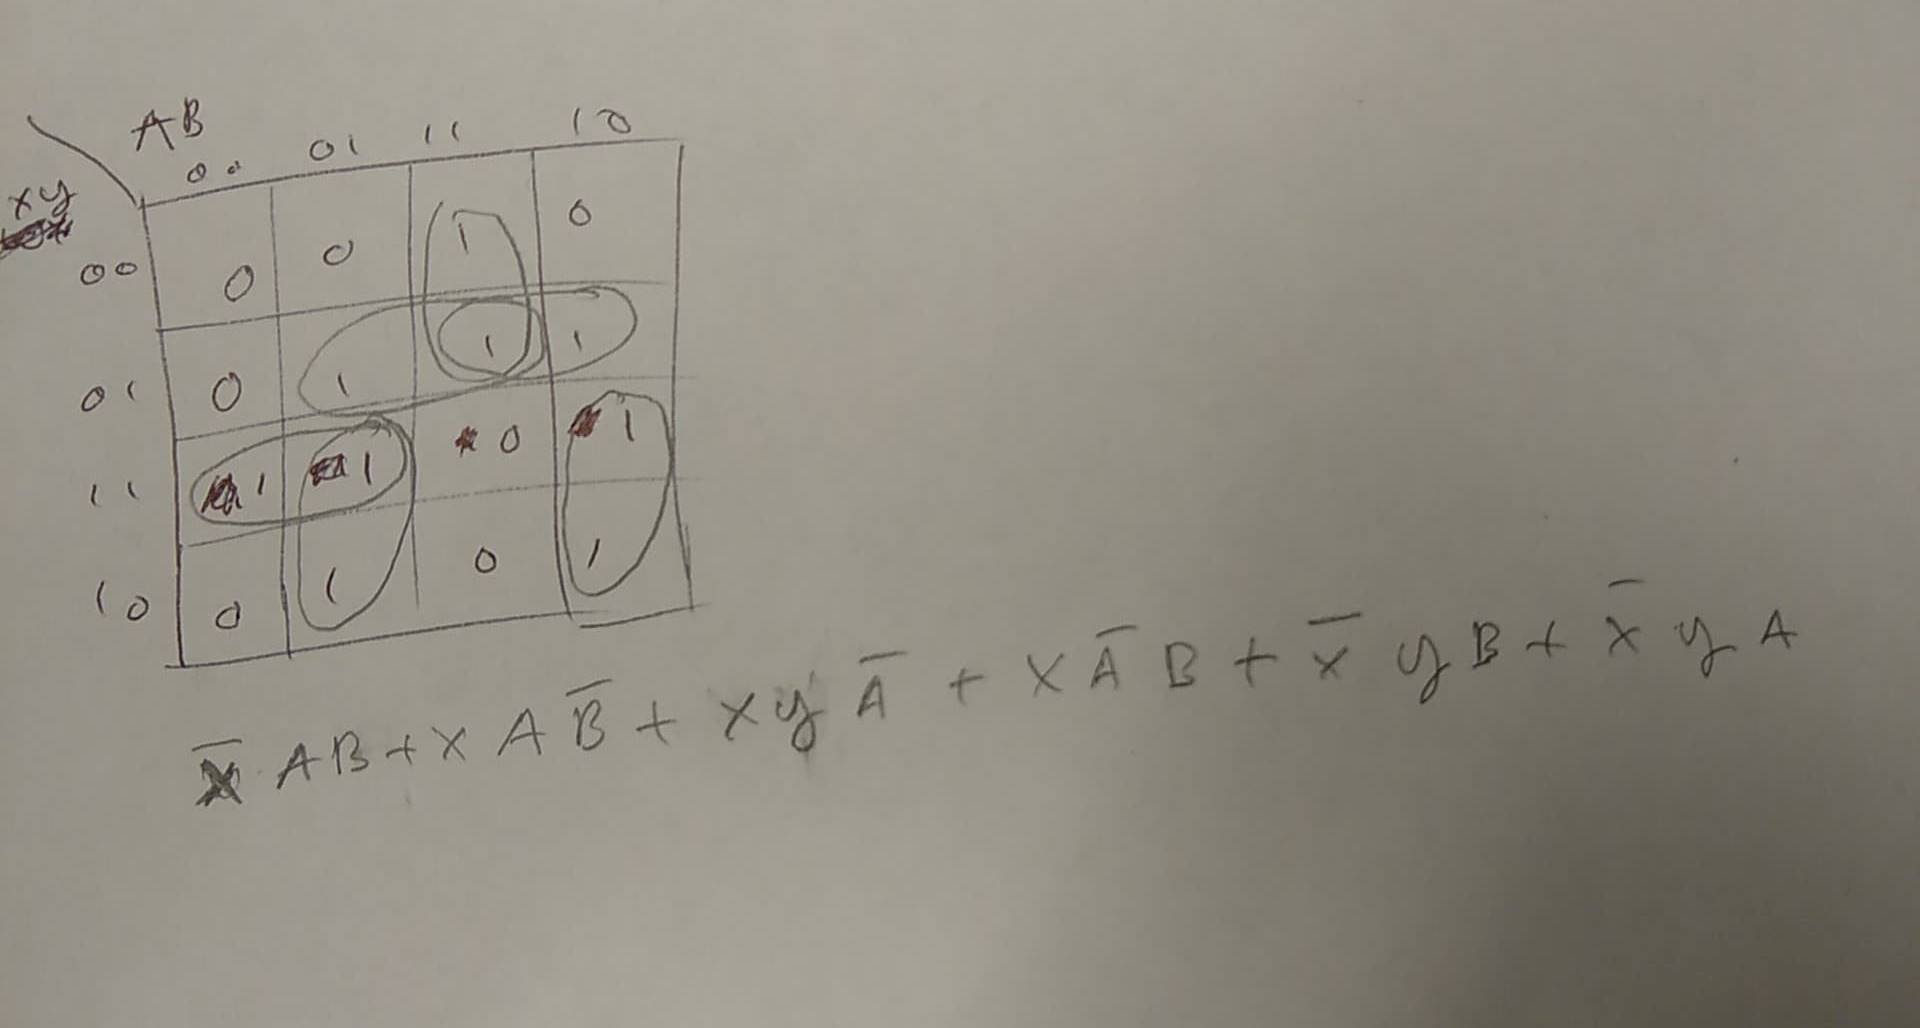 AB
00 01 11 10
xy
00 0 0 1 0
01 0 1 1 1
11 1 1 0 1
10 0 1 0 1
X̅ AB + X A B̅ + x y A̅ + X A̅ B + x̅ y B + x̅ y A